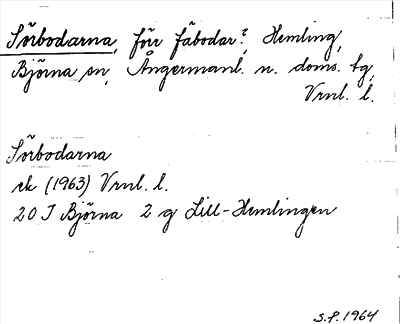 Sörbodarna, förr fäbodar?, Hemling,
Björna sn, Ångermanl. n. doms. tg,
Vrnl. l.
Sörbodarna
rk (1963) Vrnl. l.
20 I Björna 2 g Lill-Hemlingen
S.P. 1964